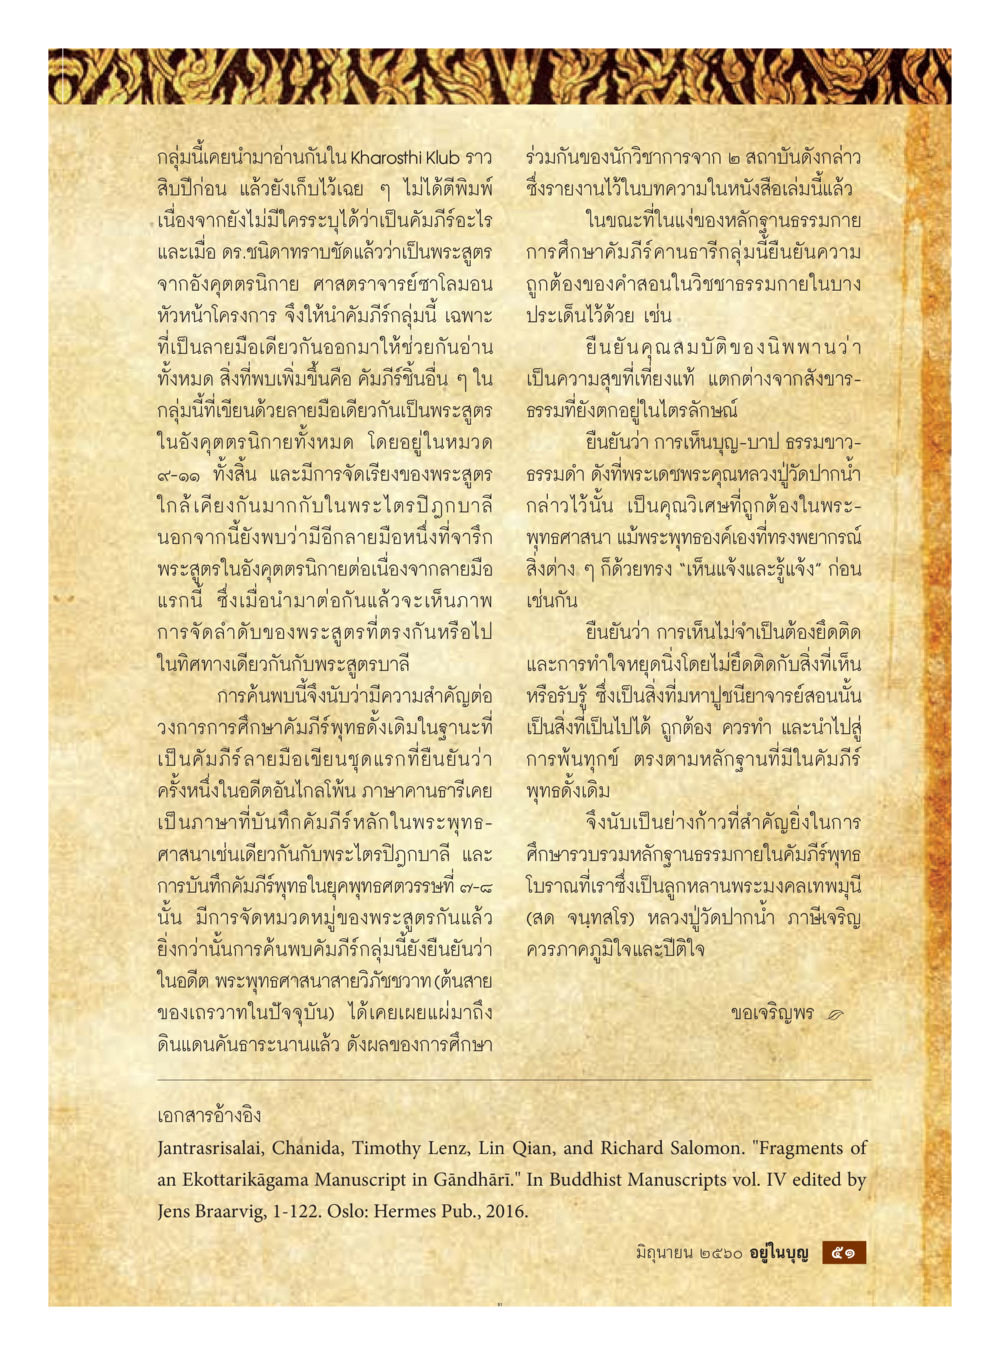 กลุ่มนี้เคยนำมาอ่านกันใน Kharosthi Klub ราว
สิบปีก่อน แล้วยังเก็บไว้เฉย ๆ ไม่ได้ตีพิมพ์
เนื่องจากยังไม่มีใครระบุได้ว่าเป็นคัมภีร์อะไร
และเมื่อ ดร.ชนิดาทราบชัดแล้วว่าเป็นพระสูตร
จากอังคุตตรนิกาย ศาสตราจารย์ซาโลมอน
หัวหน้าโครงการ จึงให้นำคัมภีร์กลุ่มนี้ เฉพาะ
ที่เป็นลายมือเดียวกันออกมาให้ช่วยกันอ่าน
ทั้งหมด สิ่งที่พบเพิ่มขึ้นคือ คัมภีร์ชิ้นอื่น ๆ ใน
กลุ่มนี้ที่เขียนด้วยลายมือเดียวกันเป็นพระสูตร
ในอังคุตตรนิกายทั้งหมด โดยอยู่ในหมวด
๙-๑๑ ทั้งสิ้น และมีการจัดเรียงของพระสูตร
ใกล้เคียงกันมากกับในพระไตรปิฎกบาลี
นอกจากนี้ยังพบว่ามีอีกลายมือหนึ่งที่จารึก
พระสูตรในอังคุตตรนิกายต่อเนื่องจากลายมือ
แรกนี้ ซึ่งเมื่อนำมาต่อกันแล้วจะเห็นภาพ
การจัดลำดับของพระสูตรที่ตรงกันหรือไป
ในทิศทางเดียวกันกับพระสูตรบาลี
การค้นพบนี้จึงนับว่ามีความสำคัญต่อ
วงการการศึกษาคัมภีร์พุทธดั้งเดิมในฐานะที่
เป็นคัมภีร์ลายมือเขียนชุดแรกที่ยืนยันว่า
ครั้งหนึ่งในอดีตอันไกลโพ้น ภาษาคานธารีเคย
เป็นภาษาที่บันทึกคัมภีร์หลักในพระพุทธ-
ศาสนาเช่นเดียวกันกับพระไตรปิฎกบาลี และ
การบันทึกคัมภีร์พุทธในยุคพุทธศตวรรษที่ ๗-๘
นั้น มีการจัดหมวดหมู่ของพระสูตรกันแล้ว
ยิ่งกว่านั้นการค้นพบคัมภีร์กลุ่มนี้ยังยืนยันว่า
ในอดีต พระพุทธศาสนาสายวิภัชชวาท (ต้นสาย
ของเถรวาทในปัจจุบัน) ได้เคยเผยแผ่มาถึง
ดินแดนคันธาระนานแล้ว ดังผลของการศึกษา
ร่วมกันของนักวิชาการจาก ๒ สถาบันดังกล่าว
ซึ่งรายงานไว้ในบทความในหนังสือเล่มนี้แล้ว
ในขณะที่ในแง่ของหลักฐานธรรมกาย
การศึกษาคัมภีร์คานธารีกลุ่มนี้ยืนยันความ
ถูกต้องของคำสอนในวิชชาธรรมกายในบาง
ประเด็นไว้ด้วย เช่น
ยืนยันคุณสมบัติของนิพพานว่า
เป็นความสุขที่เที่ยงแท้ แตกต่างจากสังขาร-
ธรรมที่ยังตกอยู่ในไตรลักษณ์
ยืนยันว่า การเห็นบุญ-บาป ธรรมขาว-
ธรรมดำ ดังที่พระเดชพระคุณหลวงปู่วัดปากน้ำ
กล่าวไว้นั้น เป็นคุณวิเศษที่ถูกต้องในพระ-
พุทธศาสนา แม้พระพุทธองค์เองที่ทรงพยากรณ์
สิ่งต่าง ๆ ก็ด้วยทรง “เห็นแจ้งและรู้แจ้ง” ก่อน
เช่นกัน
ยืนยันว่า การเห็นไม่จำเป็นต้องยึดติด
และการทำใจหยุดนิ่งโดยไม่ยึดติดกับสิ่งที่เห็น
หรือรับรู้ ซึ่งเป็นสิ่งที่มหาปูชนียาจารย์สอนนั้น
เป็นสิ่งที่เป็นไปได้ ถูกต้อง ควรทำ และนำไปสู่
การพ้นทุกข์ ตรงตามหลักฐานที่มีในคัมภีร์
พุทธดั้งเดิม
จึงนับเป็นย่างก้าวที่สำคัญยิ่งในการ
ศึกษารวบรวมหลักฐานธรรมกายในคัมภีร์พุทธ
โบราณที่เราซึ่งเป็นลูกหลานพระมงคลเทพมุนี
(สด จนฺทสโร) หลวงปู่วัดปากน้ำ ภาษีเจริญ
ควรภาคภูมิใจและปีติใจ
ขอเจริญพร
เอกสารอ้างอิง
Jantrasrisalai, Chanida, Timothy Lenz, Lin Qian, and Richard Salomon. "Fragments of
an Ekottarikāgama Manuscript in Gāndhārī." In Buddhist Manuscripts vol. IV edited by
Jens Braarvig, 1-122. Oslo: Hermes Pub., 2016.
มิถุนายน ๒๕๖๐ อยู่ในบุญ ๕๑